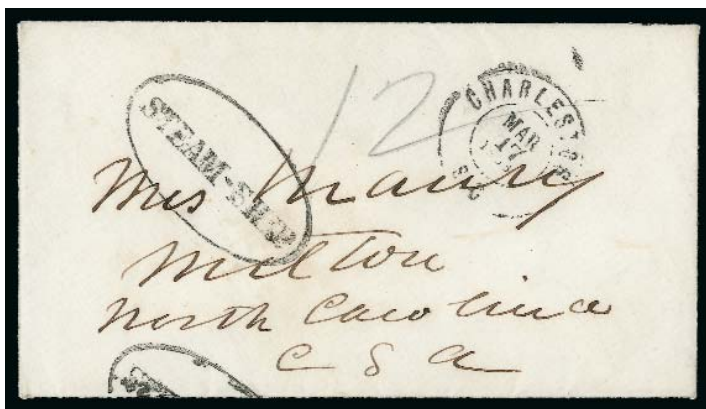 STEAM-SHIP
12
CHARLESTON
MAR
17
S.C.
Mrs Maury
Milton
North Carolina
C S A